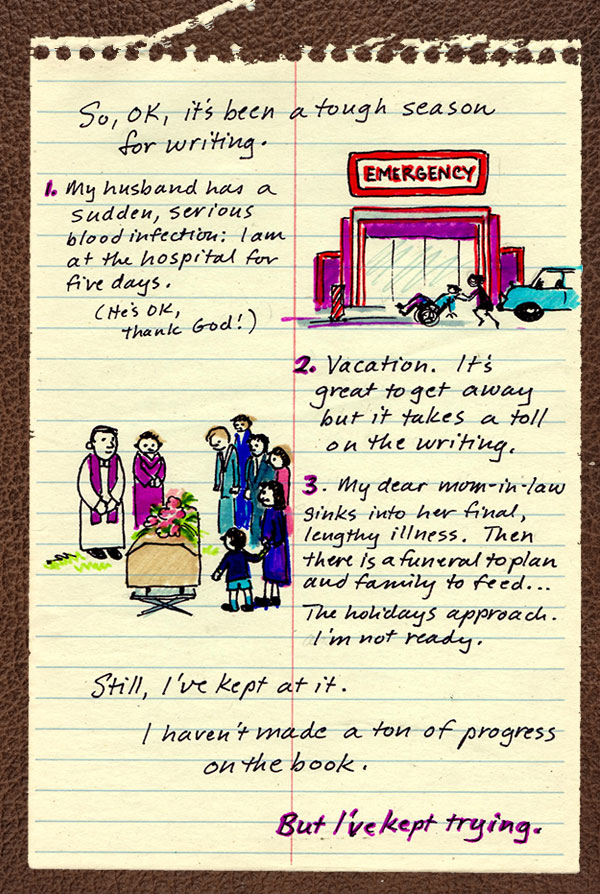 So, OK, it's been a tough season
for writing.
1. My husband has a
sudden, serious
blood infection: I am
at the hospital for
five days.
(He's OK,
thank God!)
EMERGENCY
2. Vacation. It's
great to get away
but it takes a toll
on the writing.
3. My dear mom-in-law
sinks into her final,
lengthy illness. Then
there is a funeral to plan
and family to feed...
The holidays approach.
I'm not ready.
Still, I've kept at it.
I haven't made a ton of progress
on the book.
But I've kept trying.